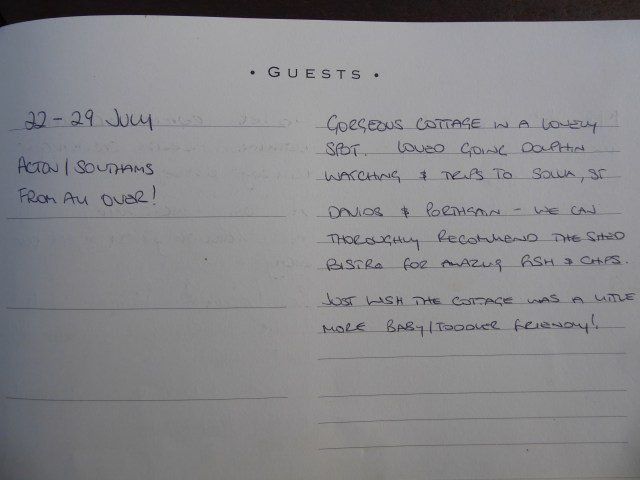 • GUESTS •
22 - 29 JULY
ACTON / SOUTHAMS
FROM ALL OVER!
GORGEOUS COTTAGE IN A LOVELY
SPOT. LOVED GOING DOLPHIN
WATCHING & TRIPS TO SOLVA, ST
DAVIDS & PORTHGAIN - WE CAN
THOROUGHLY RECOMMEND THE SHED
BISTRO FOR AMAZING FISH & CHIPS.
JUST WISH THE COTTAGE WAS A LITTLE
MORE BABY / TODDLER FRIENDLY!